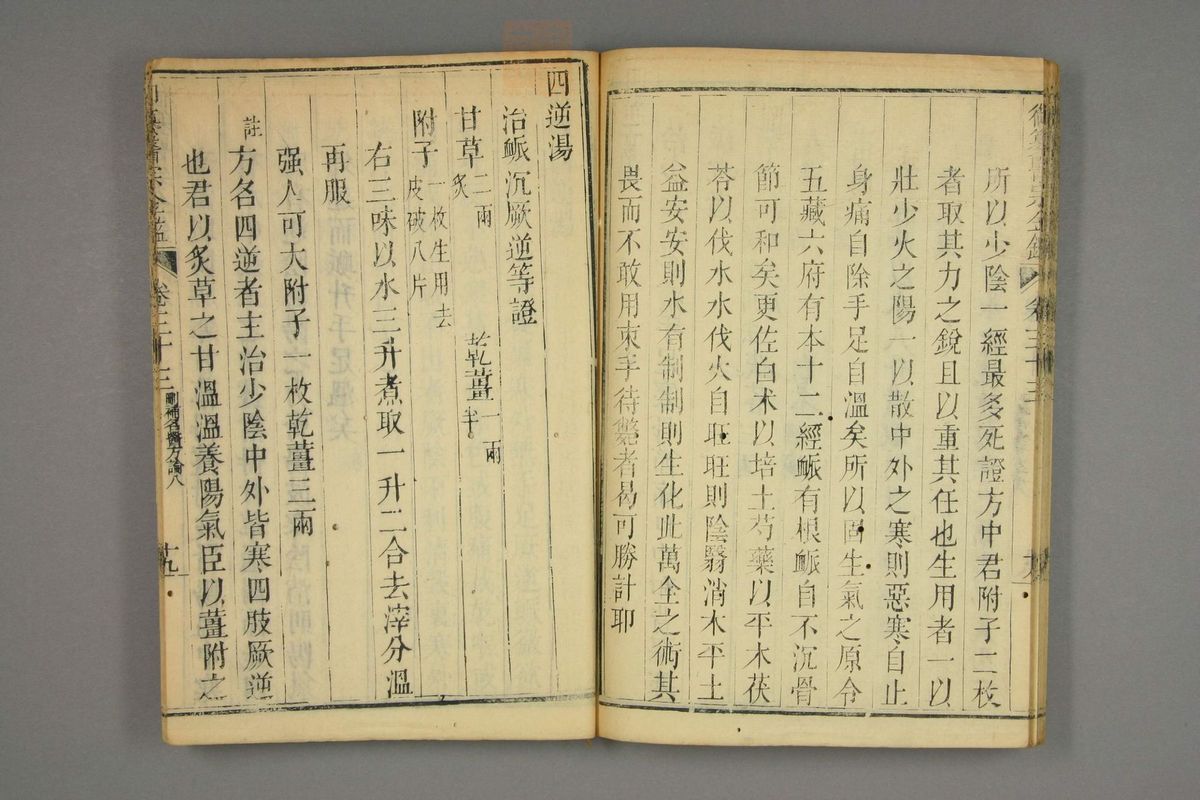 所以少陰一經最多死證方中君附子二枚
者取其力之銳且以重其任也生用者一以
壯少火之陽一以散中外之寒則惡寒自止
身痛自除手足自溫矣所以固生氣之原令
五藏六府有本十二經䘑有根䘑自不沉骨
節可和矣更佐白术以培土芍藥以平木茯
苓以伐水水伐火自旺旺則陰翳消木平土
益安安則水有制制則生化此萬全之術其
畏而不敢用束手待斃者曷可勝計耶
四逆湯
治䘑沉厥逆等證
甘草二兩炙 乾薑一兩半
附子一枚生用去皮破八片
右三味以水三升煮取一升二合去滓分溫
再服
强人可大附子一枚乾薑三兩
註方名四逆者主治少陰中外皆寒四肢厥逆
也君以炙草之甘溫溫養陽氣臣以薑附之
卷三十三 刪補名醫方論八 十九